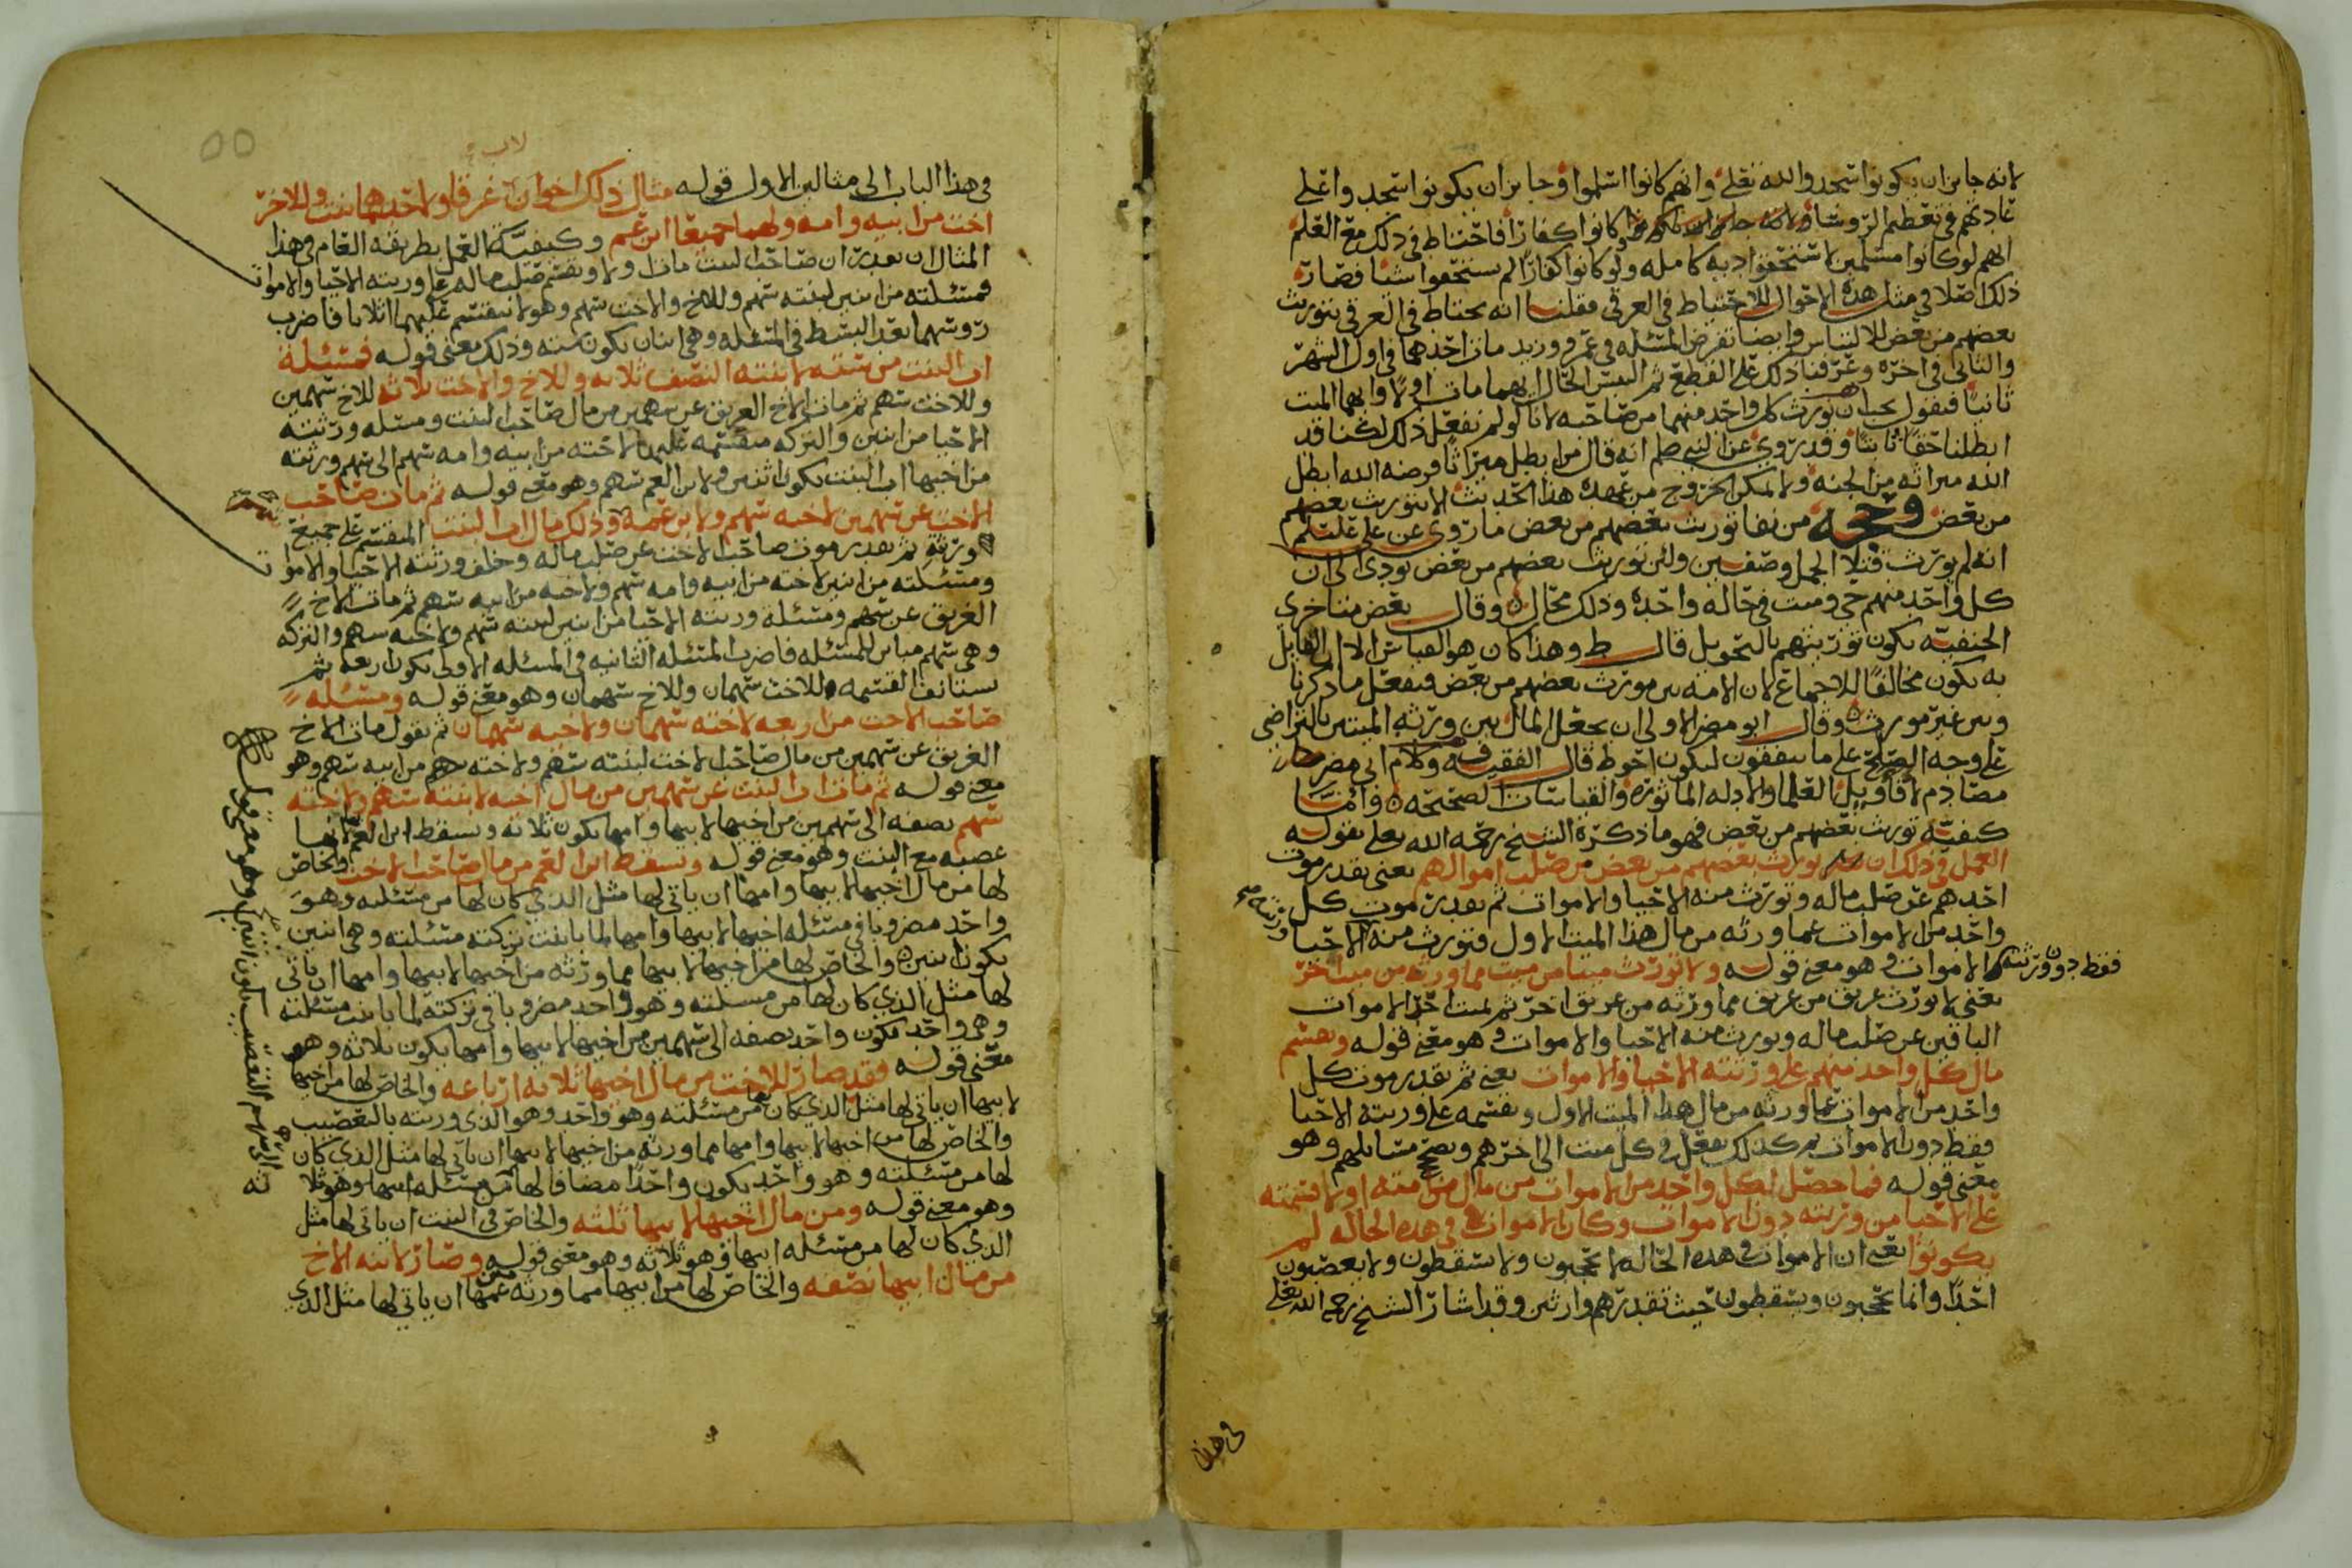 لانه جايز ان يكونوا سجدوا لله تعلى وانهم كانوا اسلموا وجايز ان يكونوا سجدوا على
عادتهم في تعظيم الروسا ولانه كانوا كفارا فاحتاط في ذلك مع العلم
انهم لو كانوا مسلمين لاستحقوا ديه كامله ولو كانوا كفارا لم يستحقوا شيا فصار
ذلك اصلا في مثل هذه الاحوال للاحتياط في الغرقى فقلنا انه يحتاط في الغرقى بتوريث
بعضهم من بعض للالتباس وايضا نفرض المسئله في عمرو وزيد مات احدهما في اول الشهر
والثاني في اخره وعرفنا ذلك على القطع ثم التبس الحال ايهما مات اولا وايهما الميت
ثانيا فنقول يجب ان نورث كل واحد منهما من صاحبه لانا لو لم نفعل ذلك لكنا قد
ابطلنا حقا ثابتا وقد روي عن النبي صلم انه قال من ابطل ميراثا فرضه الله ابطل
الله ميراثه من الجنه ولا يمكن الخروج من عهدة هذا الحديث الا بتوريث بعضهم
من بعض وحجه من نفا توريث بعضهم من بعض ما روي عن علي عليلم
انه لم يورث قتلا الجمل وصفين ولئن توريث بعضهم من بعض يودي الى ان
كل واحد منهم حي وميت في حالة واحده وذلك محال وقال بعض متاخري
الحنفيه يكون توريثهم بالتحويل قال ط وهذا كان هو القياس الا ان القايل
به يكون مخالفا للاجماع لان الامه بين مورث بعضهم من بعض فنفعل ما ذكرنا
وبين غير مورث وقال ابو مضر الاولى ان يجعل المال بين ورثه الميتين بالتراضي
على وجه الصلح على ما يتفقون ليكون احوط قال الفقيه ف وكلام ابي مضر
مصادم لاقاويل العلما والادله الماثوره والقياسات الصحيحه واما
كيفية توريث بعضهم من بعض فهو ما ذكره الشيخ رحمه الله تعلى بقوله
العمل في ذلك ان يورث بعضهم من بعض من صلب اموالهم يعني يقدر موت
احدهم عن صلب ماله وتورث منه الاحيا والاموات ثم يقدر موت كل
واحد من الاموات عما ورثه من مال هذا الميت الاول فتورث منه الاحيا ورثته
فقط دون ورثته الاموات وهو معنى قوله ولا تورث ميتا من ميت مما ورثه من ميت اخر
يعني لا يورث غريق من غريق مما ورثه من غريق اخر ثم يميت احد الاموات
الباقين عن صلب ماله ويورث منه الاحيا والاموات وهو معنى قوله ويقسم
مال كل واحد منهم على ورثته الاحيا والاموات يعني ثم يقدر موت كل
واحد من الاموات عما ورثه من مال هذا الميت الاول ويقسمه على ورثته الاحيا
فقط دون الاموات ثم كذلك يفعل في كل ميت الى اخرهم ويصحح مسايلهم وهو
معنى قوله فما حصل لكل واحد من الاموات من مال من مات معه اولا قسمته
على الاحيا من ورثته دون الاموات وكان الاموات في هذه الحاله لم
يكونوا يعني ان الاموات في هذه الحاله لا يحجبون ولا يسقطون ولا يعصبون
احدا وانما يحجبون ويسقطون حيث تقدرهم وارثين وقد اشار الشيخ رحمه الله تعلى
في هذا
في هذا الباب الى مثالين الاول قوله مثال ذلك اخوان غرقا ولاحدهما بنت وللاخر
لاب
اخت من ابيه وامه ولهما جميعا ابن عم وكيفيه العمل بطريقه العام في هذا
المثال ان يقدر ان صاحب البنت مات اولا ويقسم صلب ماله على ورثته الاحيا والاموات
فمسئلته من اثنين لبنته سهم وللاخ والاخت سهم وهو لا ينقسم عليهما اثلاثا فاضرب
روسهما بعد البسط في المسئله وهي اثنان يكون سته وذلك معنى قوله فمسئلة
اب البنت من سته لابنته النصف ثلاثه وللاخ والاخت ثلاثه للاخ سهمين
وللاخت سهم ثم مات الاخ الغريق عن سهمين من مال صاحب البنت ومسئله ورثته
الاحيا من اثنين والتركه منقسمه عليهما لاخته من ابيه وامه سهم الى سهم ورثته
من اخيها اب البنت يكون اثنين ولابن العم سهم وهو معنى قوله ثم مات صاحب
الاخت عن سهمين لاخته سهم ولابن عمه وذلك مال اب البنت المنقسم على جميع
ورثته ثم يقدر موت صاحب الاخت عن صلب ماله وخلف ورثته الاحيا والاموات
ومسئلته من اثنين لاخته من ابيه وامه سهم ولاخيه من ابيه سهم ثم مات الاخ
الغريق عن سهم ومسئلة ورثته الاحيا من اثنين لبنته سهم ولاخته سهم والتركه
وهي سهم مباين للمسئله فاضرب المسئله الثانيه في المسئله الاولى يكون اربعه ثم
تستانف القسمه للاخت سهمان وللاخ سهمان وهو معنى قوله ومسئله
صاحب الاخت من اربعه لاخته سهمان ولاخيه سهمان ثم نقول مات الاخ
الغريق عن سهمين من مال صاحب الاخت لبنته سهم ولاخته سهم من ابيه سهم وهو
معنى قوله ثم مات اب البنت عن سهمين من مال اخيه لابنته سهم ولاخته
سهم نصفه الى سهمين من اخيها لابيها وامها يكون ثلاثه ويسقط ابن العم لانها
عصبه مع البنت وهو معنى قوله ويسقط ابن العم من مال صاحب الاخت والخاص
لها من مال اخيها لابيها وامها ان ياتي لها مثل الذي كان لها من مسئلته وهو
واحد مضروبا في مسئله اخيها لابيها وامها لما باينت تركته مسئلته وهي اثنين
يكون اثنين والخاص لها من اخيها لابيها مما ورثه من اخيها لابيها وامها ان ياتي
لها مثل الذي كان لها من مسئلته وهو واحد مضروبا في تركته لما باينت مسئلته
وهي واحد يكون واحد نصفه الى سهمين من اخيها لابيها وامها يكون ثلاثه وهو
معنى قوله فقد صار للاخت من مال اخيها ثلاثه ارباعه والخاص لها من اخيها
لابيها ان ياتي لها مثل الذي كان لها من مسئلته وهو واحد وهو الذي ورثته بالتعصيب
والخاص لها من اخيها لابيها وامها مما ورثه من اخيها لابيها ان ياتي لها مثل الذي كان
لها من مسئلته وهو واحد يكون واحدا مضافا لها من مسئله ابيها وهو ثلا
وهو معنى قوله ومن مال اخيها لابيها ثلثه والخاص في البنت ان ياتي لها مثل
الذي كان لها من مسئله ابيها وهو ثلاثه وهو معنى قوله وصار لابنه الاخ
من مال ابيها نصفه والخاص لها من ابيها مما ورثه من عمها ان ياتي لها مثل الذي